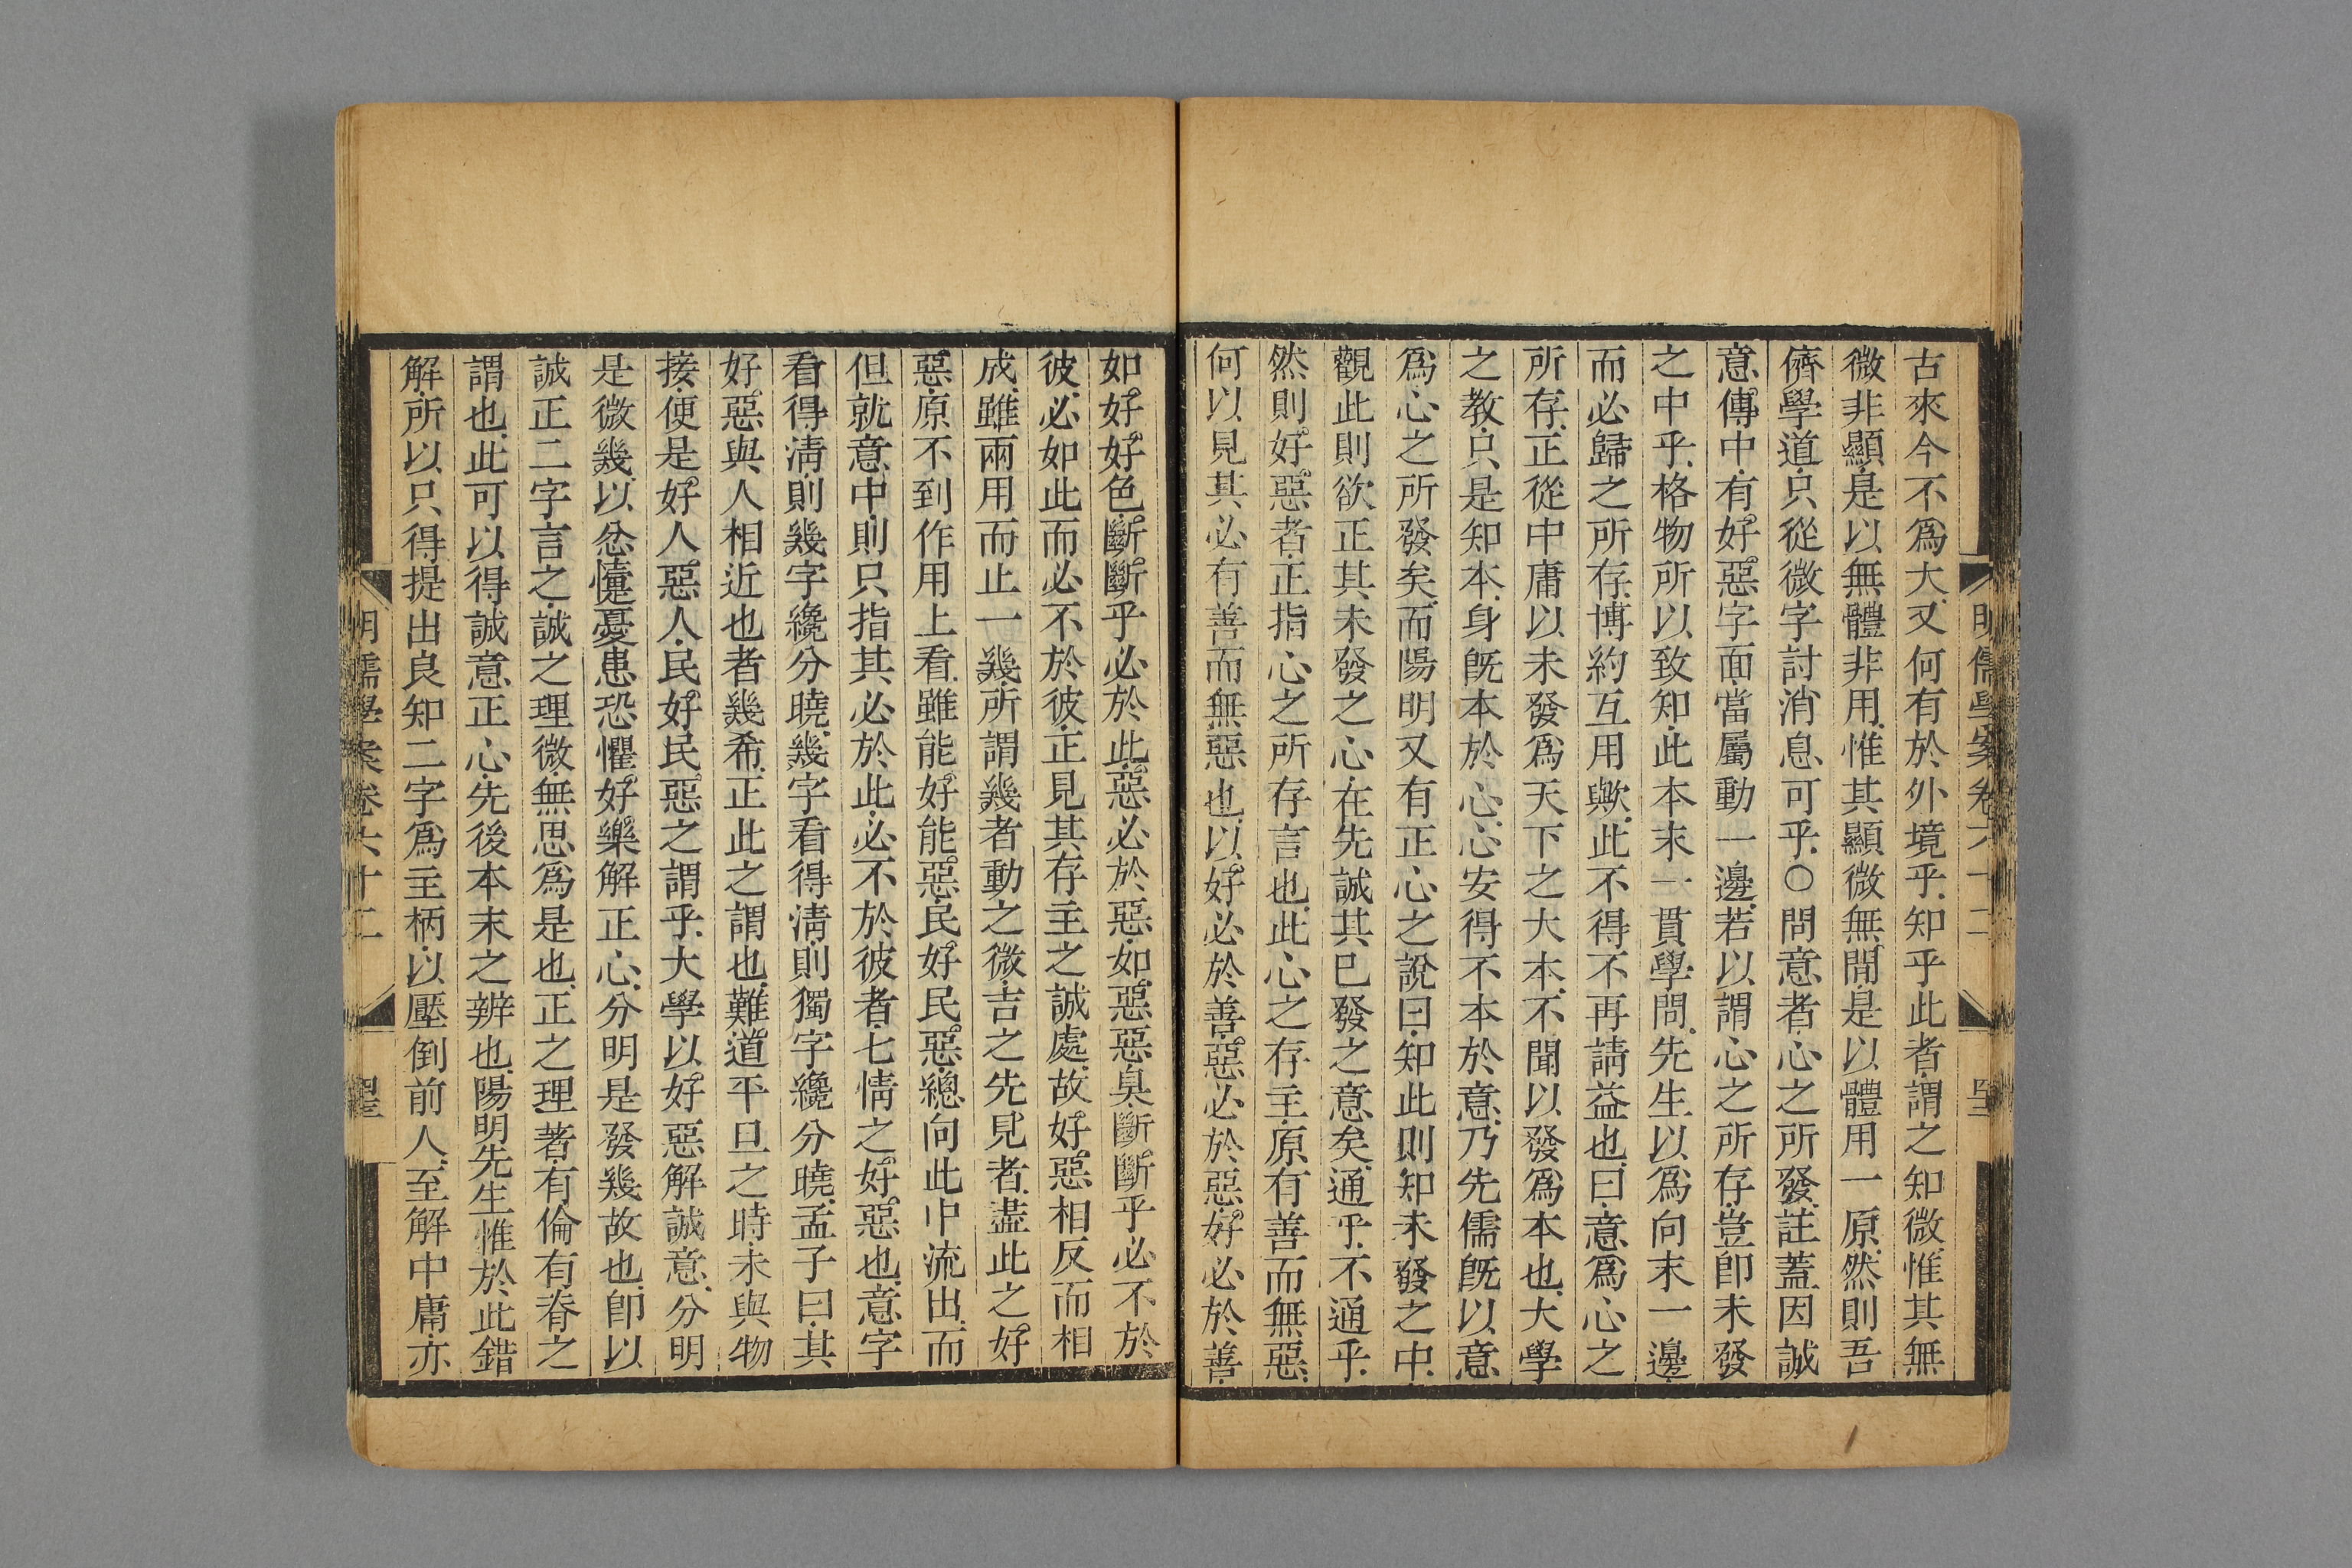 古來今不爲大又何有於外境乎知乎此者謂之知微惟其無
微非顯是以無體非用惟其顯微無閒是以體用一原然則吾
儕學道只從微字討消息可乎○問意者心之所發註蓋因誠
意傳中有好惡字面當屬動一邊若以謂心之所存豈卽未發
之中乎格物所以致知此本末一貫學問先生以爲向末一邊
而必歸之所存博約互用歟此不得不再請益也曰意爲心之
所存正從中庸以未發爲天下之大本不聞以發爲本也大學
之教只是知本身旣本於心心安得不本於意乃先儒旣以意
爲心之所發矣而陽明又有正心之說曰知此則知未發之中
觀此則欲正其未發之心在先誠其已發之意矣通乎不通乎
然則好惡者正指心之所存言也此心之存主原有善而無惡
何以見其必有善而無惡也以好必於善惡必於惡好必於善
如好好色斷斷乎必於此惡必於惡如惡惡臭斷斷乎必不於
彼必如此而必不於彼正見其存主之誠處故好惡相反而相
成雖兩用而止一幾所謂幾者動之微吉之先見者蓋此之好
惡原不到作用上看雖能好能惡民好民惡總向此中流出而
但就意中則只指其必於此必不於彼者七情之好惡也意字
看得淸則幾字纔分曉幾字看得淸則獨字纔分曉孟子曰其
好惡與人相近也者幾希正此之謂也難道平旦之時未與物
接便是好人惡人民好民惡之謂乎大學以好惡解誠意分明
是微幾以忿懥憂患恐懼好樂解正心分明是發幾故也卽以
誠正二字言之誠之理微無思爲是也正之理著有倫有脊之
謂也此可以得誠意正心先後本末之辨也陽明先生惟於此錯
解所以只得提出良知二字爲主柄以壓倒前人至解中庸亦
明儒學案卷六十二
明儒學案卷六十二